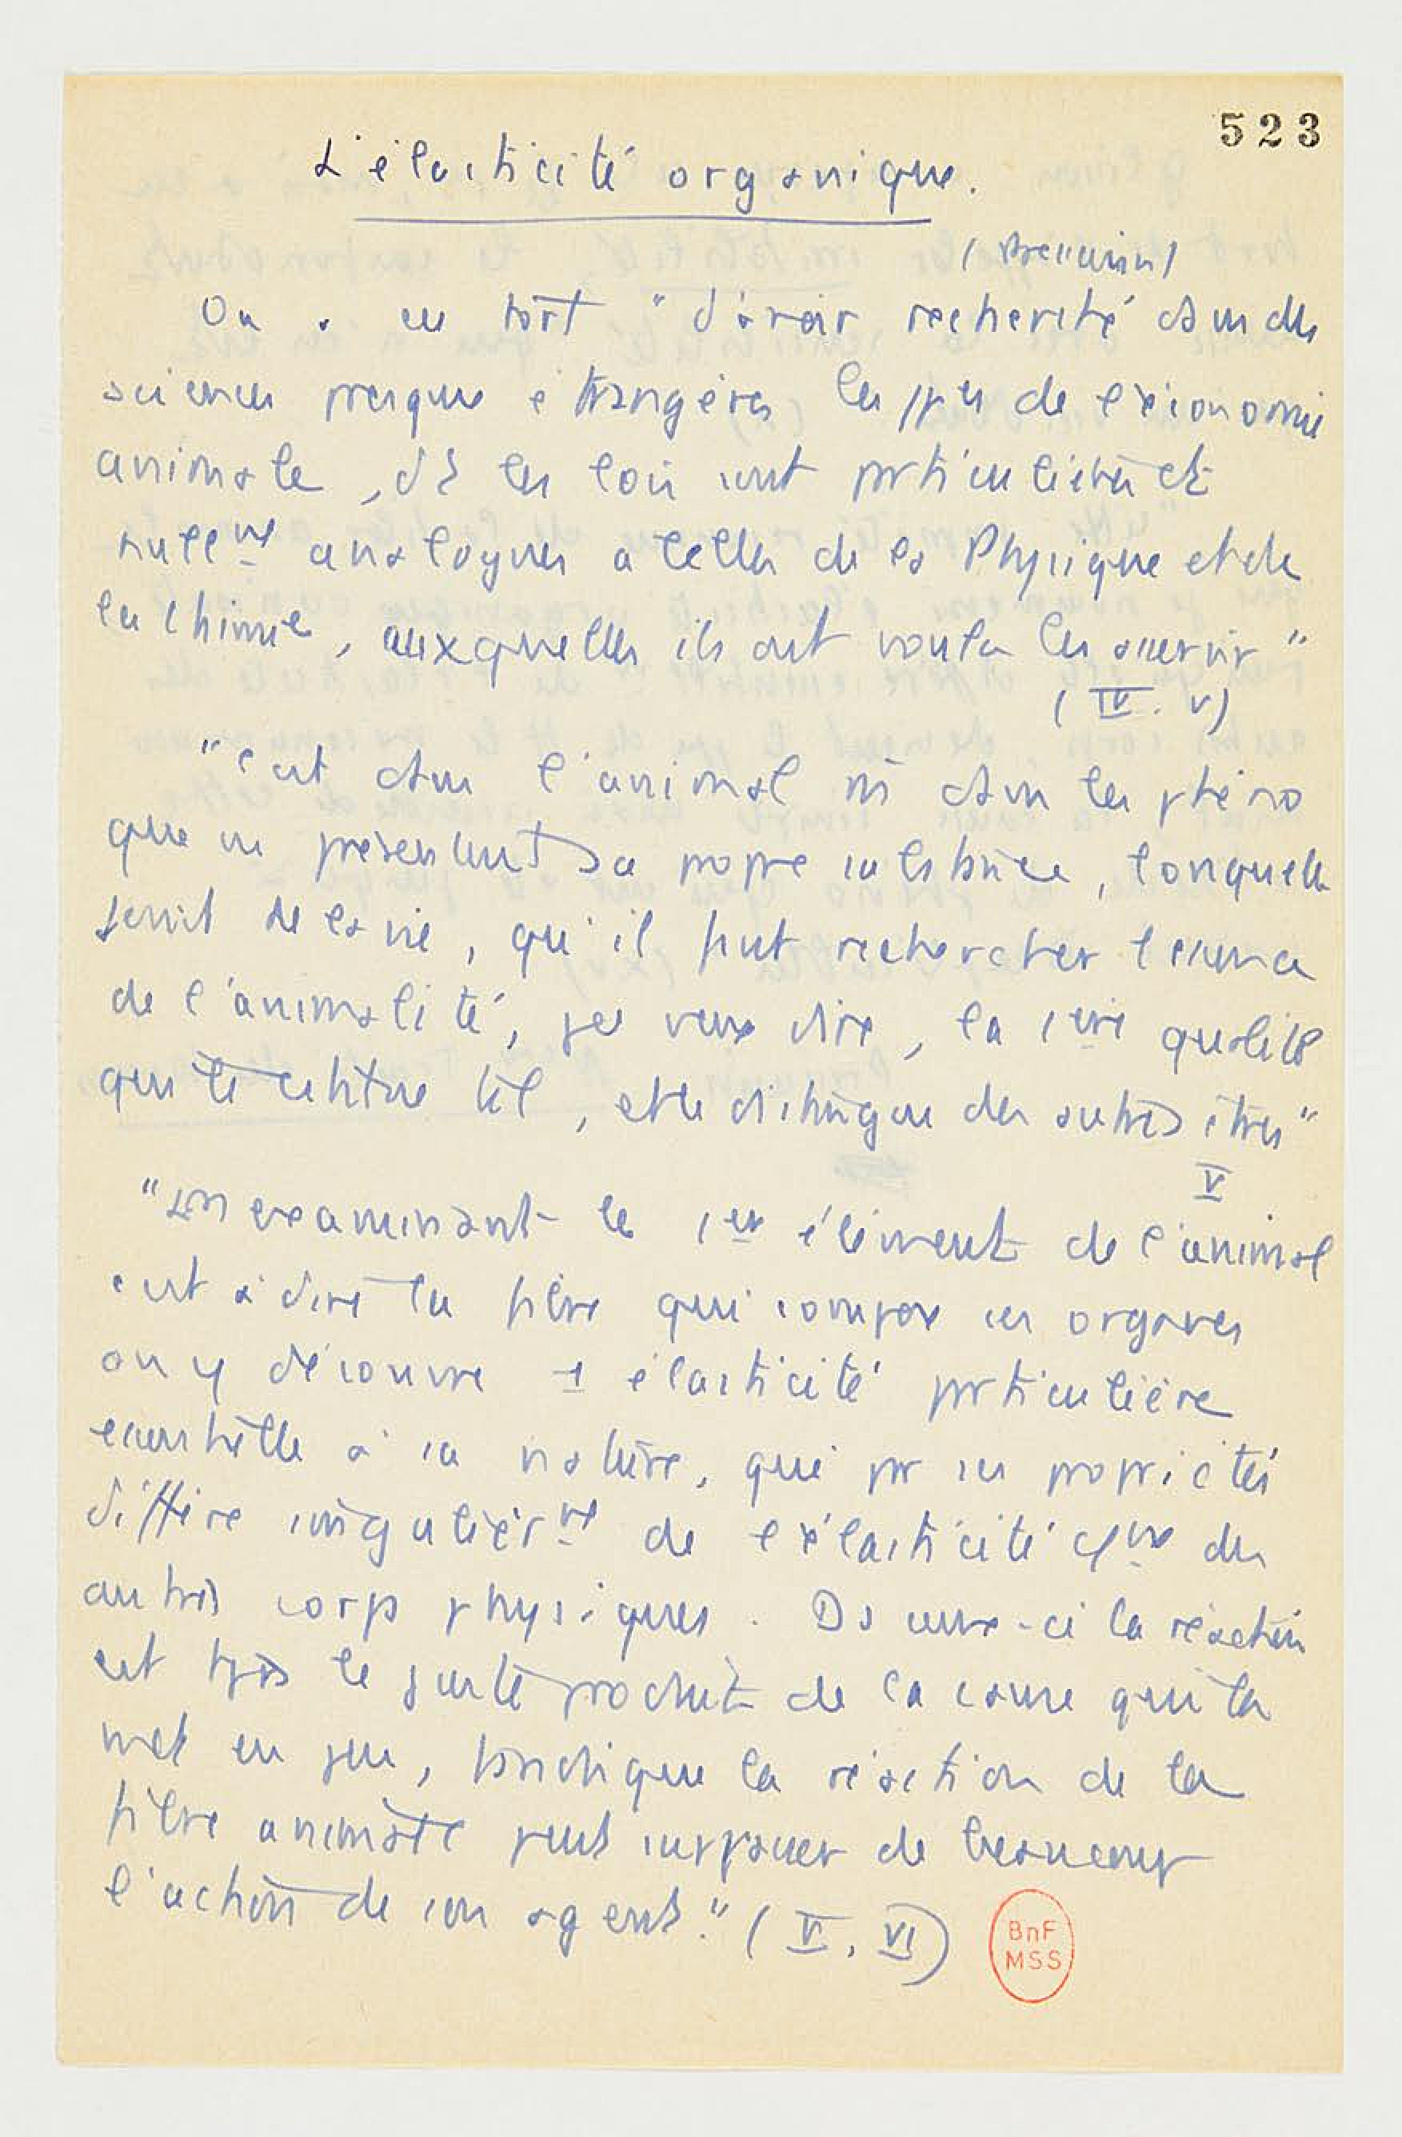 523
L'élasticité organique.
(Pressavin)
On a eu tort "d'avoir recherché dans des
sciences presque étrangères les ppes de l'économie
animale, dt les lois sont particulières et
nullemt analogues à celles de la Physique et de
la chimie, auxquelles ils ont voulu les asservir"
(IV. V)
"C'est dans l'animal dans les phéno
que ns présentent sa propre substance, lorsqu'elle
jouit de la vie, qu'il faut rechercher l'essence
de l'animalité, je veux dire, la 1ère qualité
qui le constitue tel, et le distingue des autres êtres"
V
"En examinant le 1er élément de l'animal
c'est à dire la fibre qui compose ces organes
on y découvre 1 élasticité particulière
essentielle à sa nature, qui par ses propriétés
diffère singulièremt de l'élasticité des
autres corps physiques. Ds ceux-ci la réaction
est tjrs le juste produit de la cause qui la
met en jeu, tandis que la réaction de la
fibre animale peut surpasser de beaucoup
l'action de son agent." (V, VI)
BnF
MSS